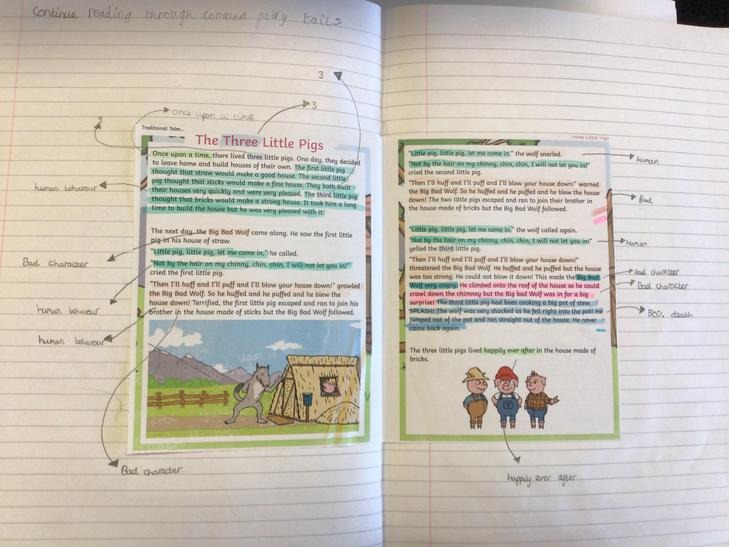 Continue reading through common fairy tails
3
3
once upon a time
3
Traditional Tales...
The Three Little Pigs
Once upon a time, there lived three little pigs. One day, they decided
to leave home and build houses of their own. The first little pig
thought that straw would make a good house. The second little
pig thought that sticks would make a fine house. They both built
their houses very quickly and were very pleased. The third little pig
thought that bricks would make a strong house. It took him a long
time to build the house but he was very pleased with it.
human behaviour
The next day, the Big Bad Wolf came along. He saw the first little
pig in his house of straw.
"Little pig, little pig, let me come in," he called.
Bad character
"Not by the hair on my chinny, chin, chin, I will not let you in!"
cried the first little pig.
"Then I'll huff and I'll puff and I'll blow your house down!" growled
the Big Bad Wolf. So he huffed and he puffed and he blew the
house down! Terrified, the first little pig escaped and ran to join his
brother in the house made of sticks but the Big Bad Wolf followed.
human behaviour
human behaviour
Bad character
Three Little Pigs
"Little pig, little pig, let me come in," the wolf snarled.
"Not by the hair on my chinny, chin, chin, I will not let you in!"
cried the second little pig.
human
"Then I'll huff and I'll puff and I'll blow your house down!" warned
the Big Bad Wolf. So he huffed and he puffed and he blew the house
down! The two little pigs escaped and ran to join their brother in
the house made of bricks but the Big Bad Wolf followed.
Bad
"Little pig, little pig, let me come in," the wolf called again.
"Not by the hair on my chinny, chin, chin, I will not let you in!"
yelled the third little pig.
human
"Then I'll huff and I'll puff and I'll blow your house down!"
threatened the Big Bad Wolf. He huffed and he puffed but the house
was too strong. He could not blow it down! This made the Big Bad
Wolf very angry. He climbed onto the roof of the house so he could
crawl down the chimney but the Big Bad Wolf was in for a big
surprise! The third little pig had been cooking a big pot of stew.
SPLASH! The wolf was very shocked as he fell right into the pot! He
jumped out of the pot and ran straight out of the house. He never
came back again.
Bad character
Bad character
50% death
The three little pigs lived happily ever after in the house made of
bricks.
happily ever after